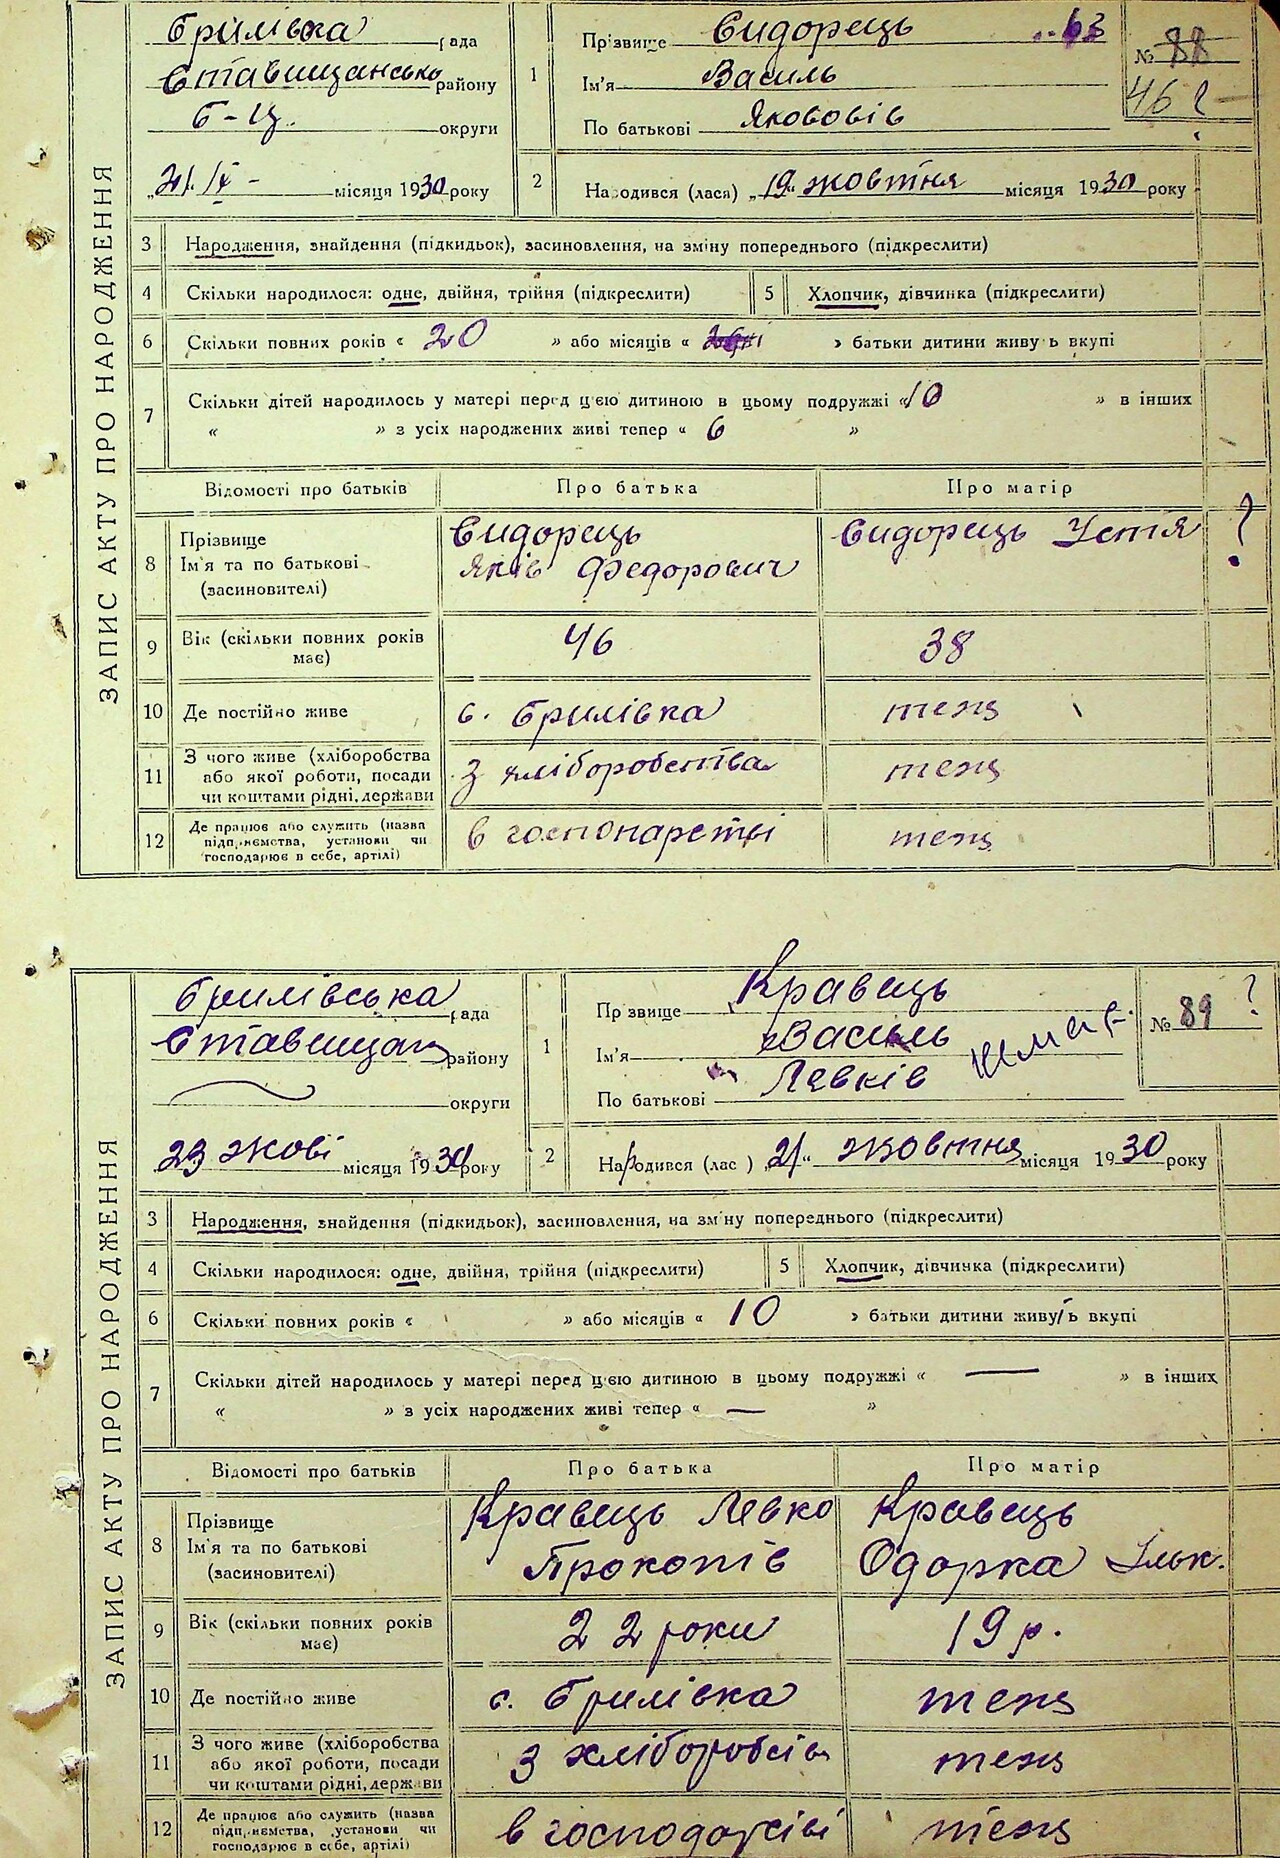 ЗАПИС АКТУ ПРО НАРОДЖЕННЯ
Брилівка рада
Ставищансько району
Б-Ц. округи
„21/ІХ - місяця 1930 року
1 Прізвище Сидорець 63
Ім'я Василь
По батькові Яковів
№ 88
46 ?
2 Народився (лася) „19“ жовтня місяця 1930 року
3 Народження, знайдення (підкидьок), засиновлення, на зміну попереднього (підкреслити)
4 Скільки народилося: одне, двійня, трійня (підкреслити) 5 Хлопчик, дівчинка (підкреслити)
6 Скільки повних років « 20 » або місяців « » батьки дитини живуть вкупі
7 Скільки дітей народилось у матері перед цією дитиною в цьому подружжі « 10 » в інших
« » з усіх народжених живі тепер « 6 »
Відомості про батьків Про батька Про матір
8 Прізвище
Ім'я та по батькові
(засиновителі)
Сидорець
Яків Федорович
Сидорець Устя ?
9 Вік (скільки повних років
має)
46 38
10 Де постійно живе с. Брилівка тенц
11 З чого живе (хліборобства
або якої роботи, посади
чи коштами рідні, держави
З хліборобства тенц
12 Де працює або служить (назва
підприємства, установи чи
господарює в себе, артілі)
в госпонарстві тенц
ЗАПИС АКТУ ПРО НАРОДЖЕННЯ
Брилівська рада
Ставищан району
округи
23 жові місяця 1930 року
1 Прізвище Кравець
Ім'я Василь
По батькові Левків
№ 89 ?
2 Народився (лас ) „21“ жовтня місяця 1930 року
3 Народження, знайдення (підкидьок), засиновлення, на зміну попереднього (підкреслити)
4 Скільки народилося: одне, двійня, трійня (підкреслити) 5 Хлопчик, дівчинка (підкреслити)
6 Скільки повних років « » або місяців « 10 » батьки дитини живуть вкупі
7 Скільки дітей народилось у матері перед цією дитиною в цьому подружжі « — » в інших
« » з усіх народжених живі тепер « — »
Відомості про батьків Про батька Про матір
8 Прізвище
Ім'я та по батькові
(засиновителі)
Кравець Левко
Прокопів
Кравець
Одорка Ільк.
9 Вік (скільки повних років
має)
22 роки 19 р.
10 Де постійно живе с. Брилівка тенц
11 З чого живе (хліборобства
або якої роботи, посади
чи коштами рідні, держави
З хліборобсів тенц
12 Де працює або служить (назва
підприємства, установи чи
господарює в себе, артілі)
в господарсіві тенц